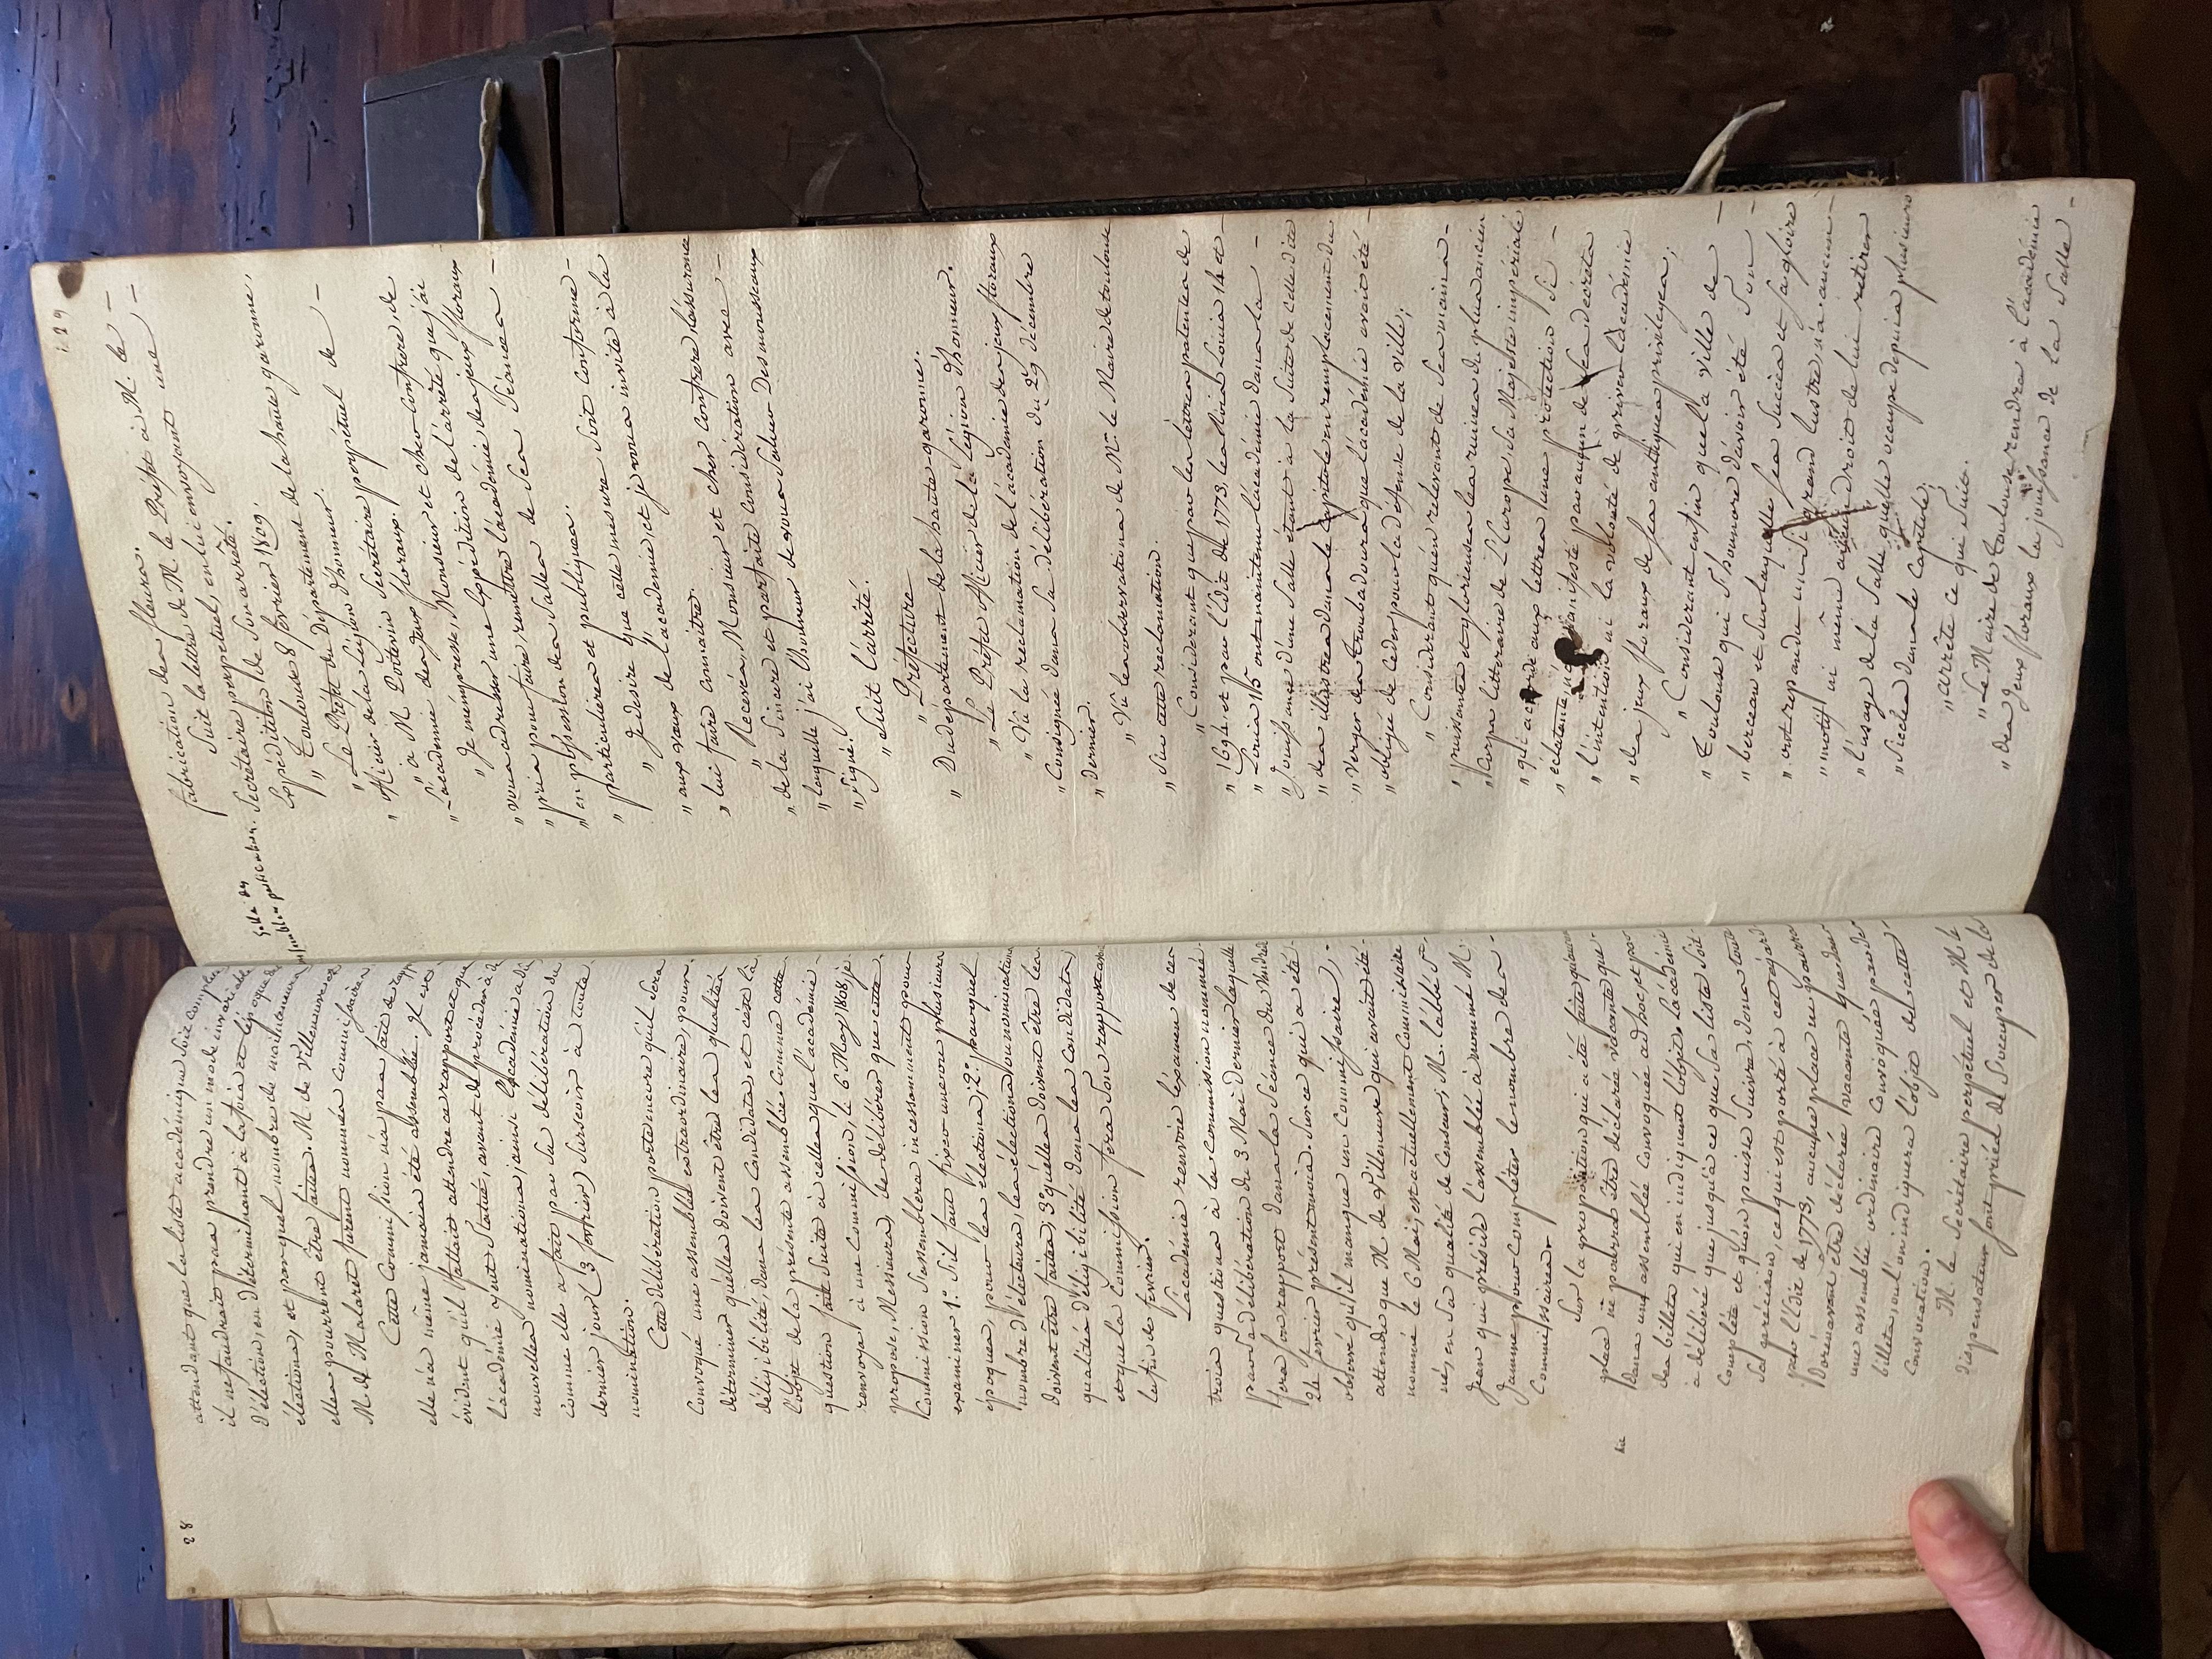 28
attendant que la liste académique soit complète
il ne faudrait pas prendre un mode invariable
d'élection, en déterminant à la fois et l'époque des
élections, et par quel nombre de mainteneurs
elles pourront être faites. M. de Villeneuve et
M. de Malaret furent nommés commissaires.
Cette Commission n'a pas fait de rapport
elle n'a même jamais été assemblée. Il est
évident qu'il fallait attendre ce rapport et que
l'académie eut statué, avant de procéder à de
nouvelles nominations; ainsi l'académie a dû
comme elle a fait par sa délibération du
dernier jour (3 février) surseoir à toute
nomination.
Cette délibération porte encore qu'il sera
convoqué une assemblée extraordinaire, pour
déterminer quelles doivent être les qualités
d'éligibilité, dans les Candidats, et c'est là
l'objet de la présente assemblée. Comme cette
question fait suite à celles que l'académie
renvoya à une Commission, le 6 May 1808, je
propose, Messieurs, de délibérer que cette
Commission s'assemblera incessamment pour
examiner 1.° s'il faut fixer une ou plusieurs
époques, pour les élections, 2.° par quel
nombre d'électeurs, les élections ou nominations
doivent être faites, 3.° quelles doivent être les
qualités d'éligibilité dans les Candidats,
et que la Commission fera son rapport avant
la fin de février.
L'académie renvoie l'examen de ces
trois questions à la Commission nommée
par sa délibération du 3 Mai dernier laquelle
fera son rapport dans la Séance du Vendredi
24 février présent mois. Sur ce qui a été
observé qu'il manque un Commissaire,
attendu que M. de Villeneuve qui avait été
nommé le 6 Mai, est actuellement Commissaire
né, en sa qualité de Censeur; M. l'abbé S.t
Jean qui préside l'assemblée a nommé M.
Jamme pour compléter le nombre des
Commissaires.
Sur la proposition qui a été faite qu'aucune
place ne pourra être déclarée vacante que
Dans une assemblée convoquée ad hoc, et par
des billets qui en indiquent l'objet, l'académie
a délibéré que jusqu'à ce que sa liste soit
complète et qu'on puisse suivre, dans toute
sa précision, ce qui est porté à cet égard
par l'édit de 1773, aucune place ne pourra
Dorénavant être déclarée vacante que dans
une assemblée ordinaire convoquée par des
billets, où l'on indiquera l'objet de cette
convocation.
M. le Secrétaire perpétuel et M. le
dispensateur sont priés de s'occuper de la
129
fabrication des fleurs.
Suit la lettre de M. le Préfet à M. le
Salle des
assemblées particulières.
Secrétaire perpétuel, en lui envoyant une
Expédition de son arrêté.
„ Toulouse 8 février 1809.
„ Le Préfet du Département de la haute garonne
„ officier de la Légion d'honneur.
„ à M. Poitevin Secrétaire perpétuel de
„ L'académie des Jeux floraux.
„ Je m'empresse, Monsieur et cher Confrère, de
„ vous adresser une Expédition de l'arrêté que j'ai
„ pris pour faire remettre l'académie des jeux floraux
„ en possession des Salles de ses Séances
„ particulières et publiques.
„ Je desire que cette mesure soit conforme
„ aux vœux de l'académie, et je vous invite à la
„ lui faire connaître.
„ Recevés, Monsieur et cher Confrère, l'assurance
„ de la sincère et parfaite considération avec
„ laquelle j'ai l'honneur de vous saluer Desmousseaux
„ signé.
„ Suit l'arrêté.
„ Préfecture
„ Du département de la haute-garonne.
„ Le Préfet officier de la Légion d'honneur.
„ Vu la réclamation de l'académie des jeux floraux
„ Consignée dans sa délibération du 29 décembre
„ dernier.
„ Vu les observations de M.r le Maire de toulouse
„ sur cette reclamation.
„ Considerant que par les lettres patentes de
„ 1694, et par l'Edit de 1773, les Rois Louis 14 et
„ Louis 15 ont maintenu l'académie dans la
„ Jouissance d'une Salle étant à la Suite de celle dite
„ des illustres dans le Capitole en remplacement du
„ Verger des troubadours que l'académie avait été
„ obligée de céder pour la défense de la ville;
„ Considérant qu'en relevant de ses mains
„ puissantes et glorieuses les ruines du plus ancien
„ Corps littéraire de L'Europe, sa Majesté impériale
„ qui accorde aux lettres une protection si
„ éclatante n'a manifesté par aucun de ses décrets
„ l'intention ni la volonté de priver l'académie
„ des jeux floraux de ses antiques privileges;
„ Considerant enfin que la ville de
„ Toulouse qui s'honnore d'avoir été son
„ berceau et sur laquelle ses succès et sa gloire
„ ont repandu un si grand lustre, n'a aucun
„ motif ni même aucun droit de lui retirer
„ l'usage de la Salle qu'elle occupe depuis plusieurs
„ siècles dans le Capitole;
„ arrête ce qui suit.
„ Le Maire de Toulouse rendra à l'académie
„ des Jeux floraux la jouissance de la Salle